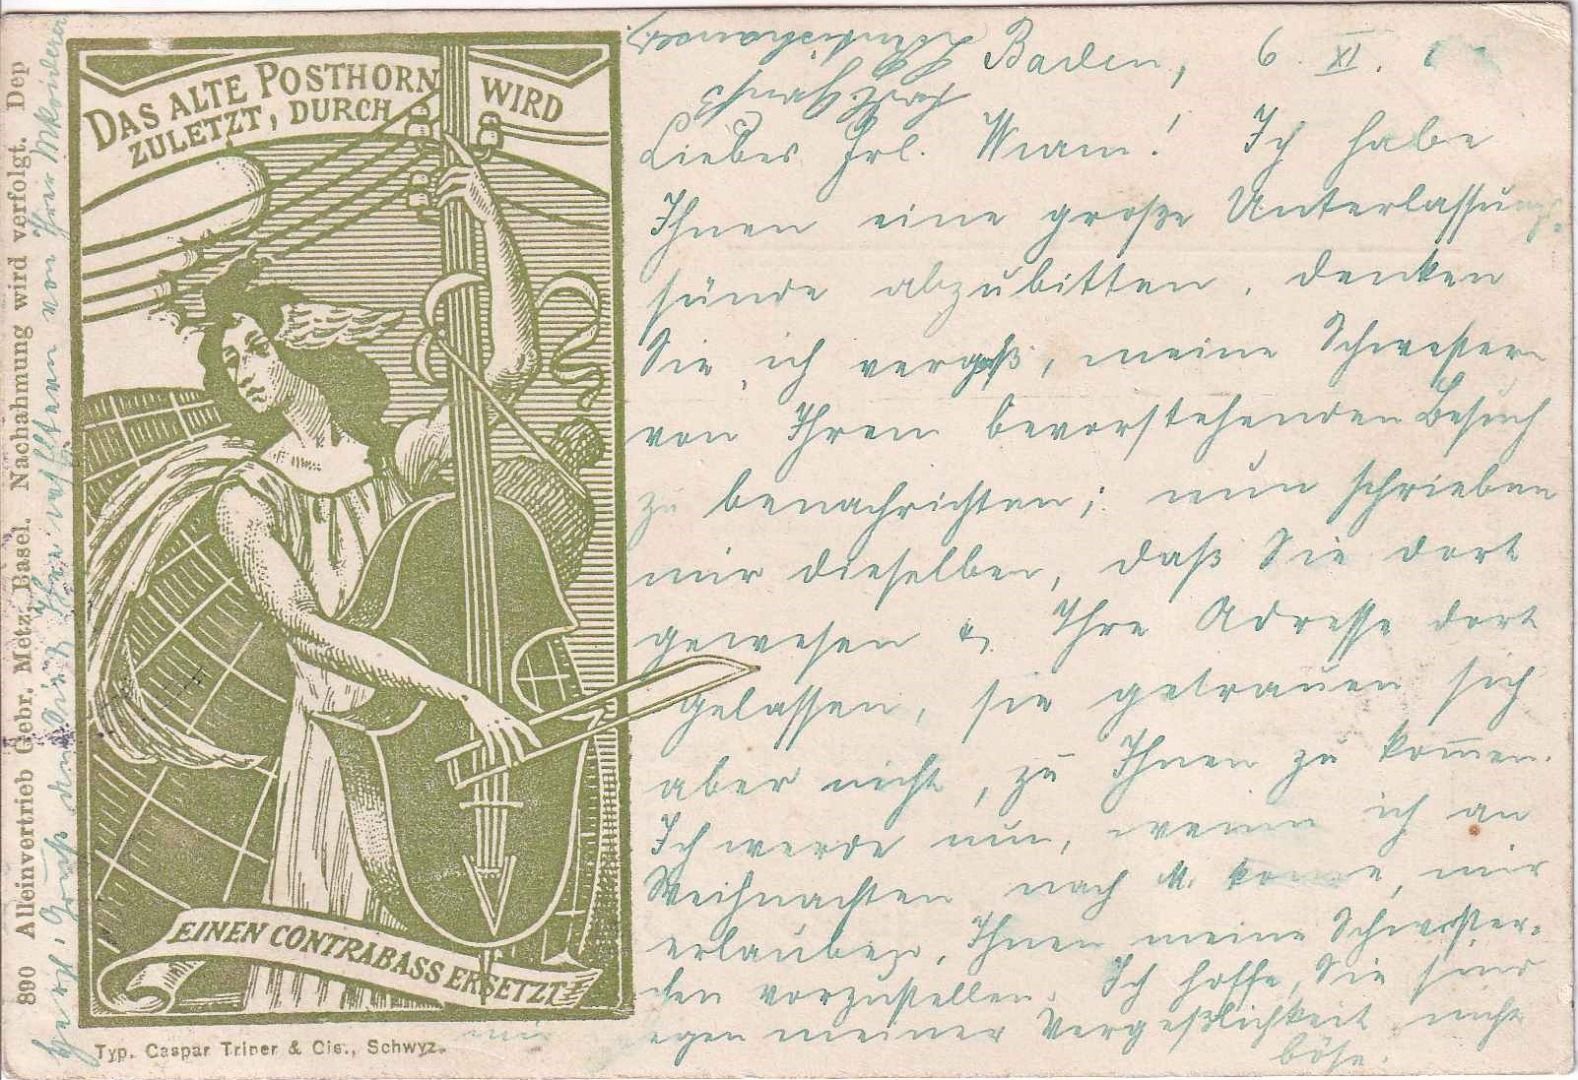 DAS ALTE POSTHORN WIRD
ZULETZT, DURCH
EINEN CONTRABASS ERSETZT
Typ. Caspar Triner & Cie., Schwyz.
890 Alleinvertrieb Gebr. Metz, Basel. Nachahmung wird verfolgt. Dep
Baden, 6. XI.
Liebes Frl. Ich habe
Ihnen eine große Unterlassungs-
sünde abzubitten, denken
Sie, ich vergaß, meine Schwestern
von Ihrem bevorstehenden Besuch
zu benachrichten; nun schrieben
mir dieselben, daß Sie dort
gewesen & Ihre Adresse dort
gelassen, sie getrauen sich
aber nicht, zu Ihnen zu kom̅en.
Ich werde nun, wenn ich an
Weihnachten nach M. komme, mir
erlauben, Ihnen meine Schwester-
chen vorzustellen. Ich hoffe, Sie sind
mir wegen meiner Vergeßlichkeit nicht
böse.
Herzl. Grüße an Sie & Ihre Eltern von Ihrer